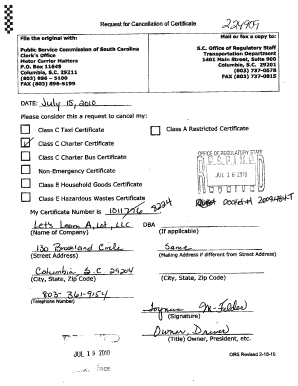 Request for Cancellation of Certificate
224909
File the original with:
Public Service Commission of South Carolina
Clerk's Office
Motor Carrier Matters
P.O. Box 11649
Columbia, S.C. 29211
(803) 896 - 5100
FAX (803) 896-5199
Mail or fax a copy to:
S.C. Office of Regulatory Staff
Transportation Department
1401 Main Street, Suite 900
Columbia, S.C. 29201
(803) 737-0578
FAX (803) 737-0815
DATE: July 15, 2010
Please consider this a request to cancel my:
Class C Taxi Certificate
Class A Restricted Certificate
Class C Charter Certificate
Class C Charter Bus Certificate
Non-Emergency Certificate
Class E Household Goods Certificate
Class E Hazardous Wastes Certificate
OFFICE OF REGULATORY STAFF
JUL 16 2010
My Certificate Number is 9224
Let's Loan A Lot, LLC DBA
(Name of Company) (If applicable)
130 Circle Same
(Street Address) (Mailing Address if different from Street Address)
Columbia S.C. 29204
(City, State, Zip Code) (City, State, Zip Code)
803-361-9154
(Telephone Number)
(Signature)
Owner, Driver
(Title) Owner, President, etc.
JUL 19 2010
ORS Revised 2-18-10